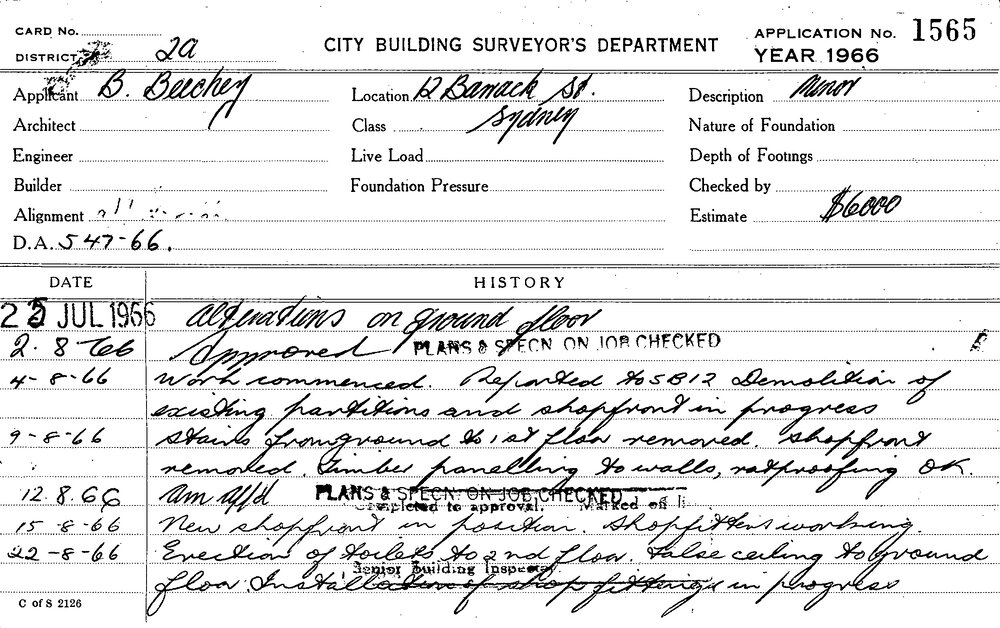 CARD No.
DISTRICT 2a
CITY BUILDING SURVEYOR'S DEPARTMENT
APPLICATION No. 1565
YEAR 1966
Applicant B. Beechey
Location 12 Barrack St.
Sydney
Description Minor
Architect
Class
Nature of Foundation
Engineer
Live Load
Depth of Footings
Builder
Foundation Pressure
Checked by
Alignment
Estimate $6000
D.A. 547-66.
DATE HISTORY
25 JUL 1966 Alterations on ground floor
2.8.66 Approved PLANS & SPECN. ON JOB CHECKED
4-8-66 Work commenced. Reported to SB12 Demolition of
existing partitions and shopfront in progress
9-8-66 Stairs from ground to 1st floor removed. Shopfront
removed. Timber panelling to walls, ratproofing OK.
12.8.66 Am app'd PLANS & SPECN. ON JOB CHECKED
Completed to approval. Marked off
15-8-66 New shopfront in position. Shopfitters working.
22-8-66 Erection of toilets to 2nd floor. False ceiling to ground
Senior Building Inspector
floor. Installation of shop fittings in progress
C of S 2126